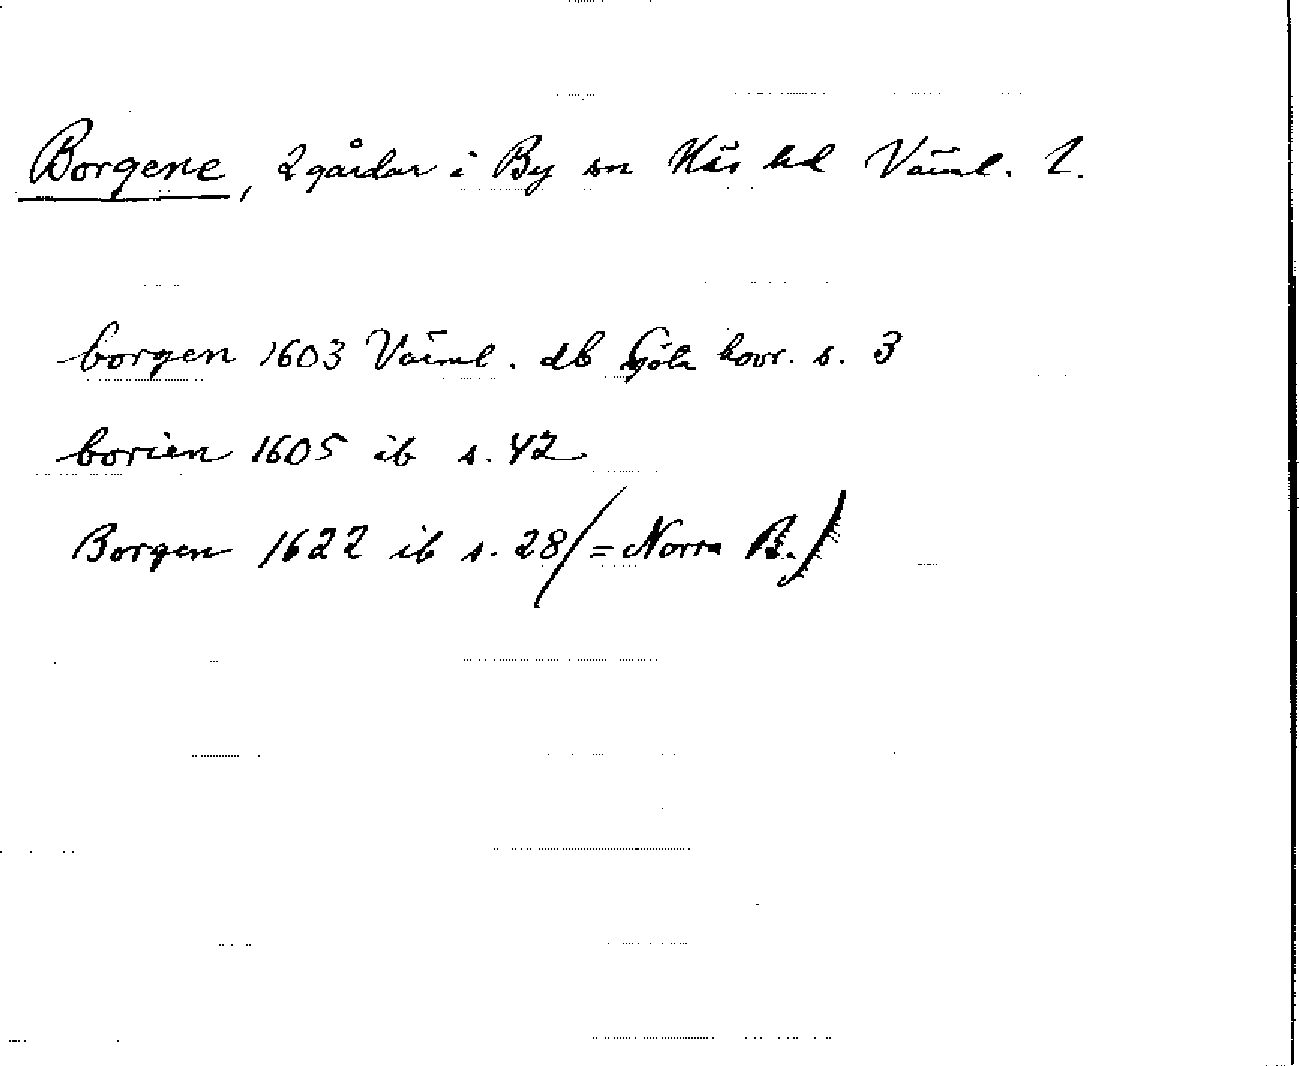 Borgene, 2 gårdar i By sn Näs hd Värml. l.
borgen 1603 Värml. db Göta hovr. s. 3
borien 1605 ib s. 42
Borgen 1622 ib s. 28 (= Norra B.)